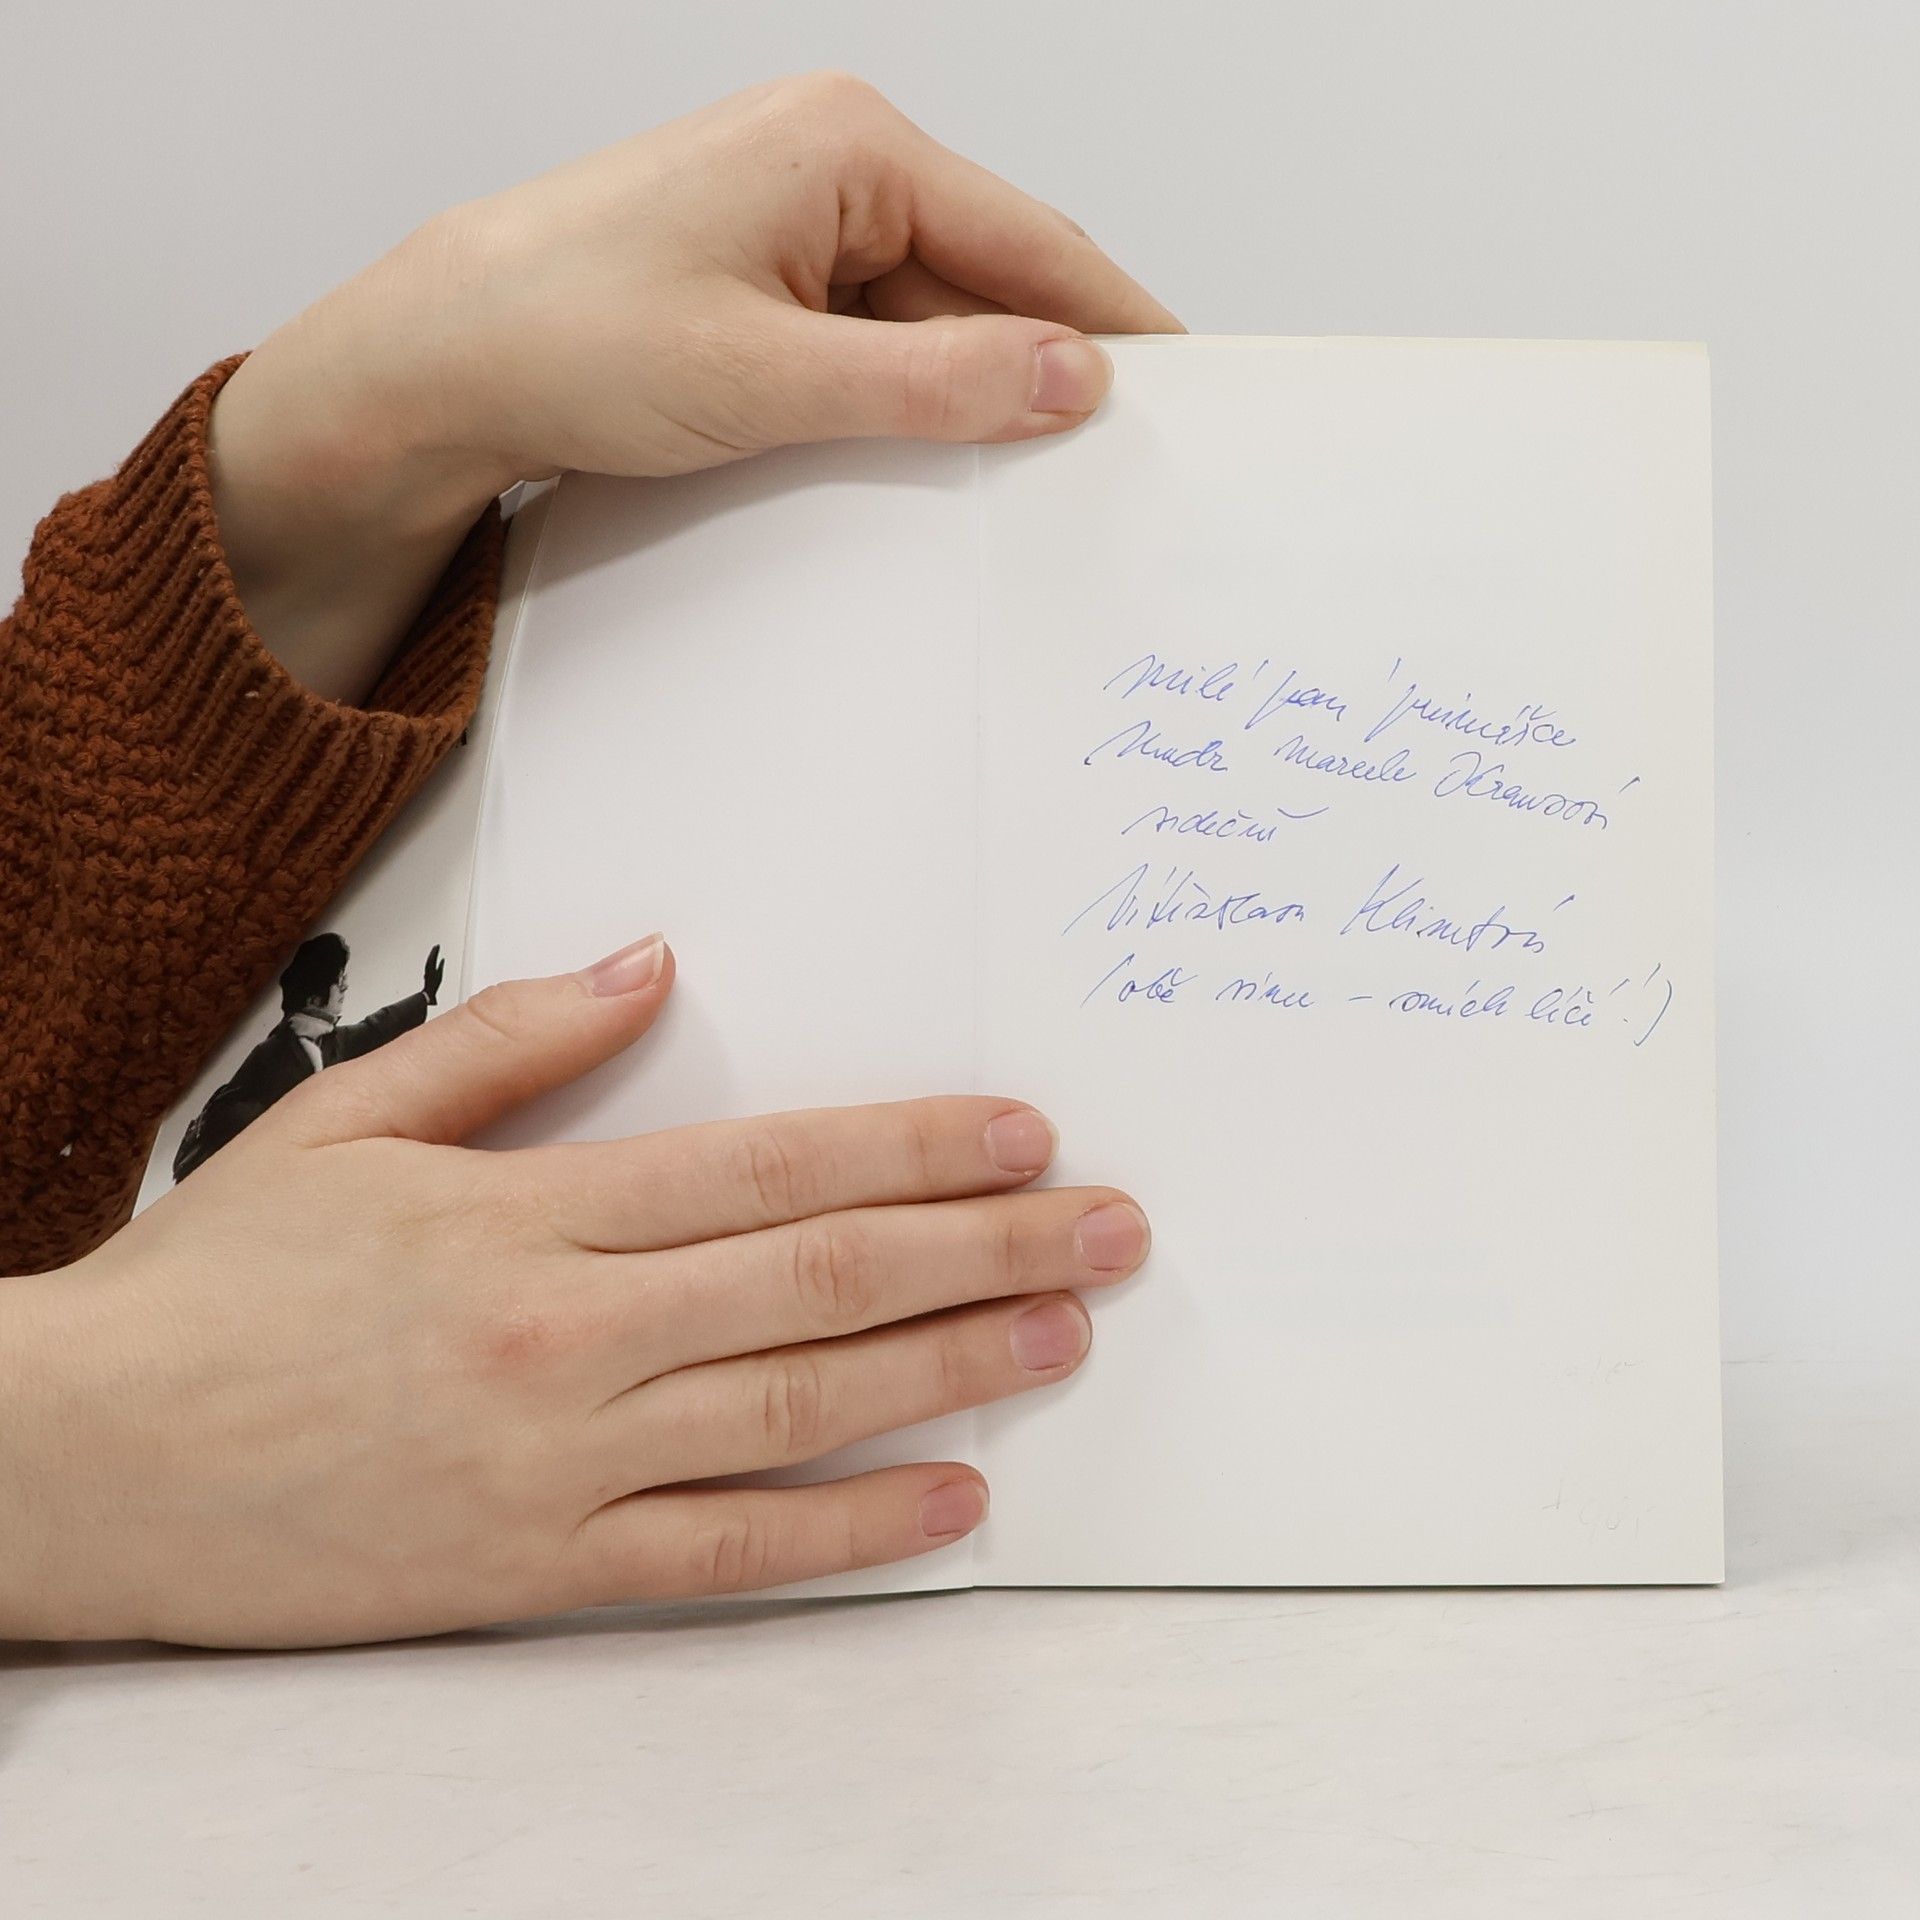 Milé paní primářce
Mudr Marcele Krausové
srdečně
Vítězslava Klimtová
(obě víme – smích léčí!)